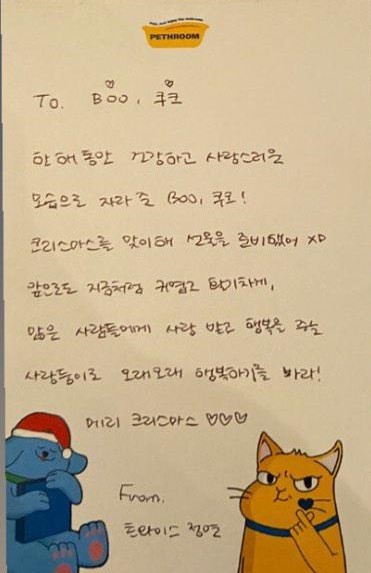 PETHROOM
To. BOO, 쿠크
한 해 동안 건강하고 사랑스러운
모습으로 자라 준 BOO, 쿠크!
크리스마스를 맞이해 선물을 준비했어 XD
앞으로도 지금처럼 귀엽고 활기차게,
많은 사람들에게 사랑 받고 행복을 주는
사랑둥이로 오래오래 행복하기를 바라!
메리 크리스마스 ♡♡♡
From.
트와이스 정연